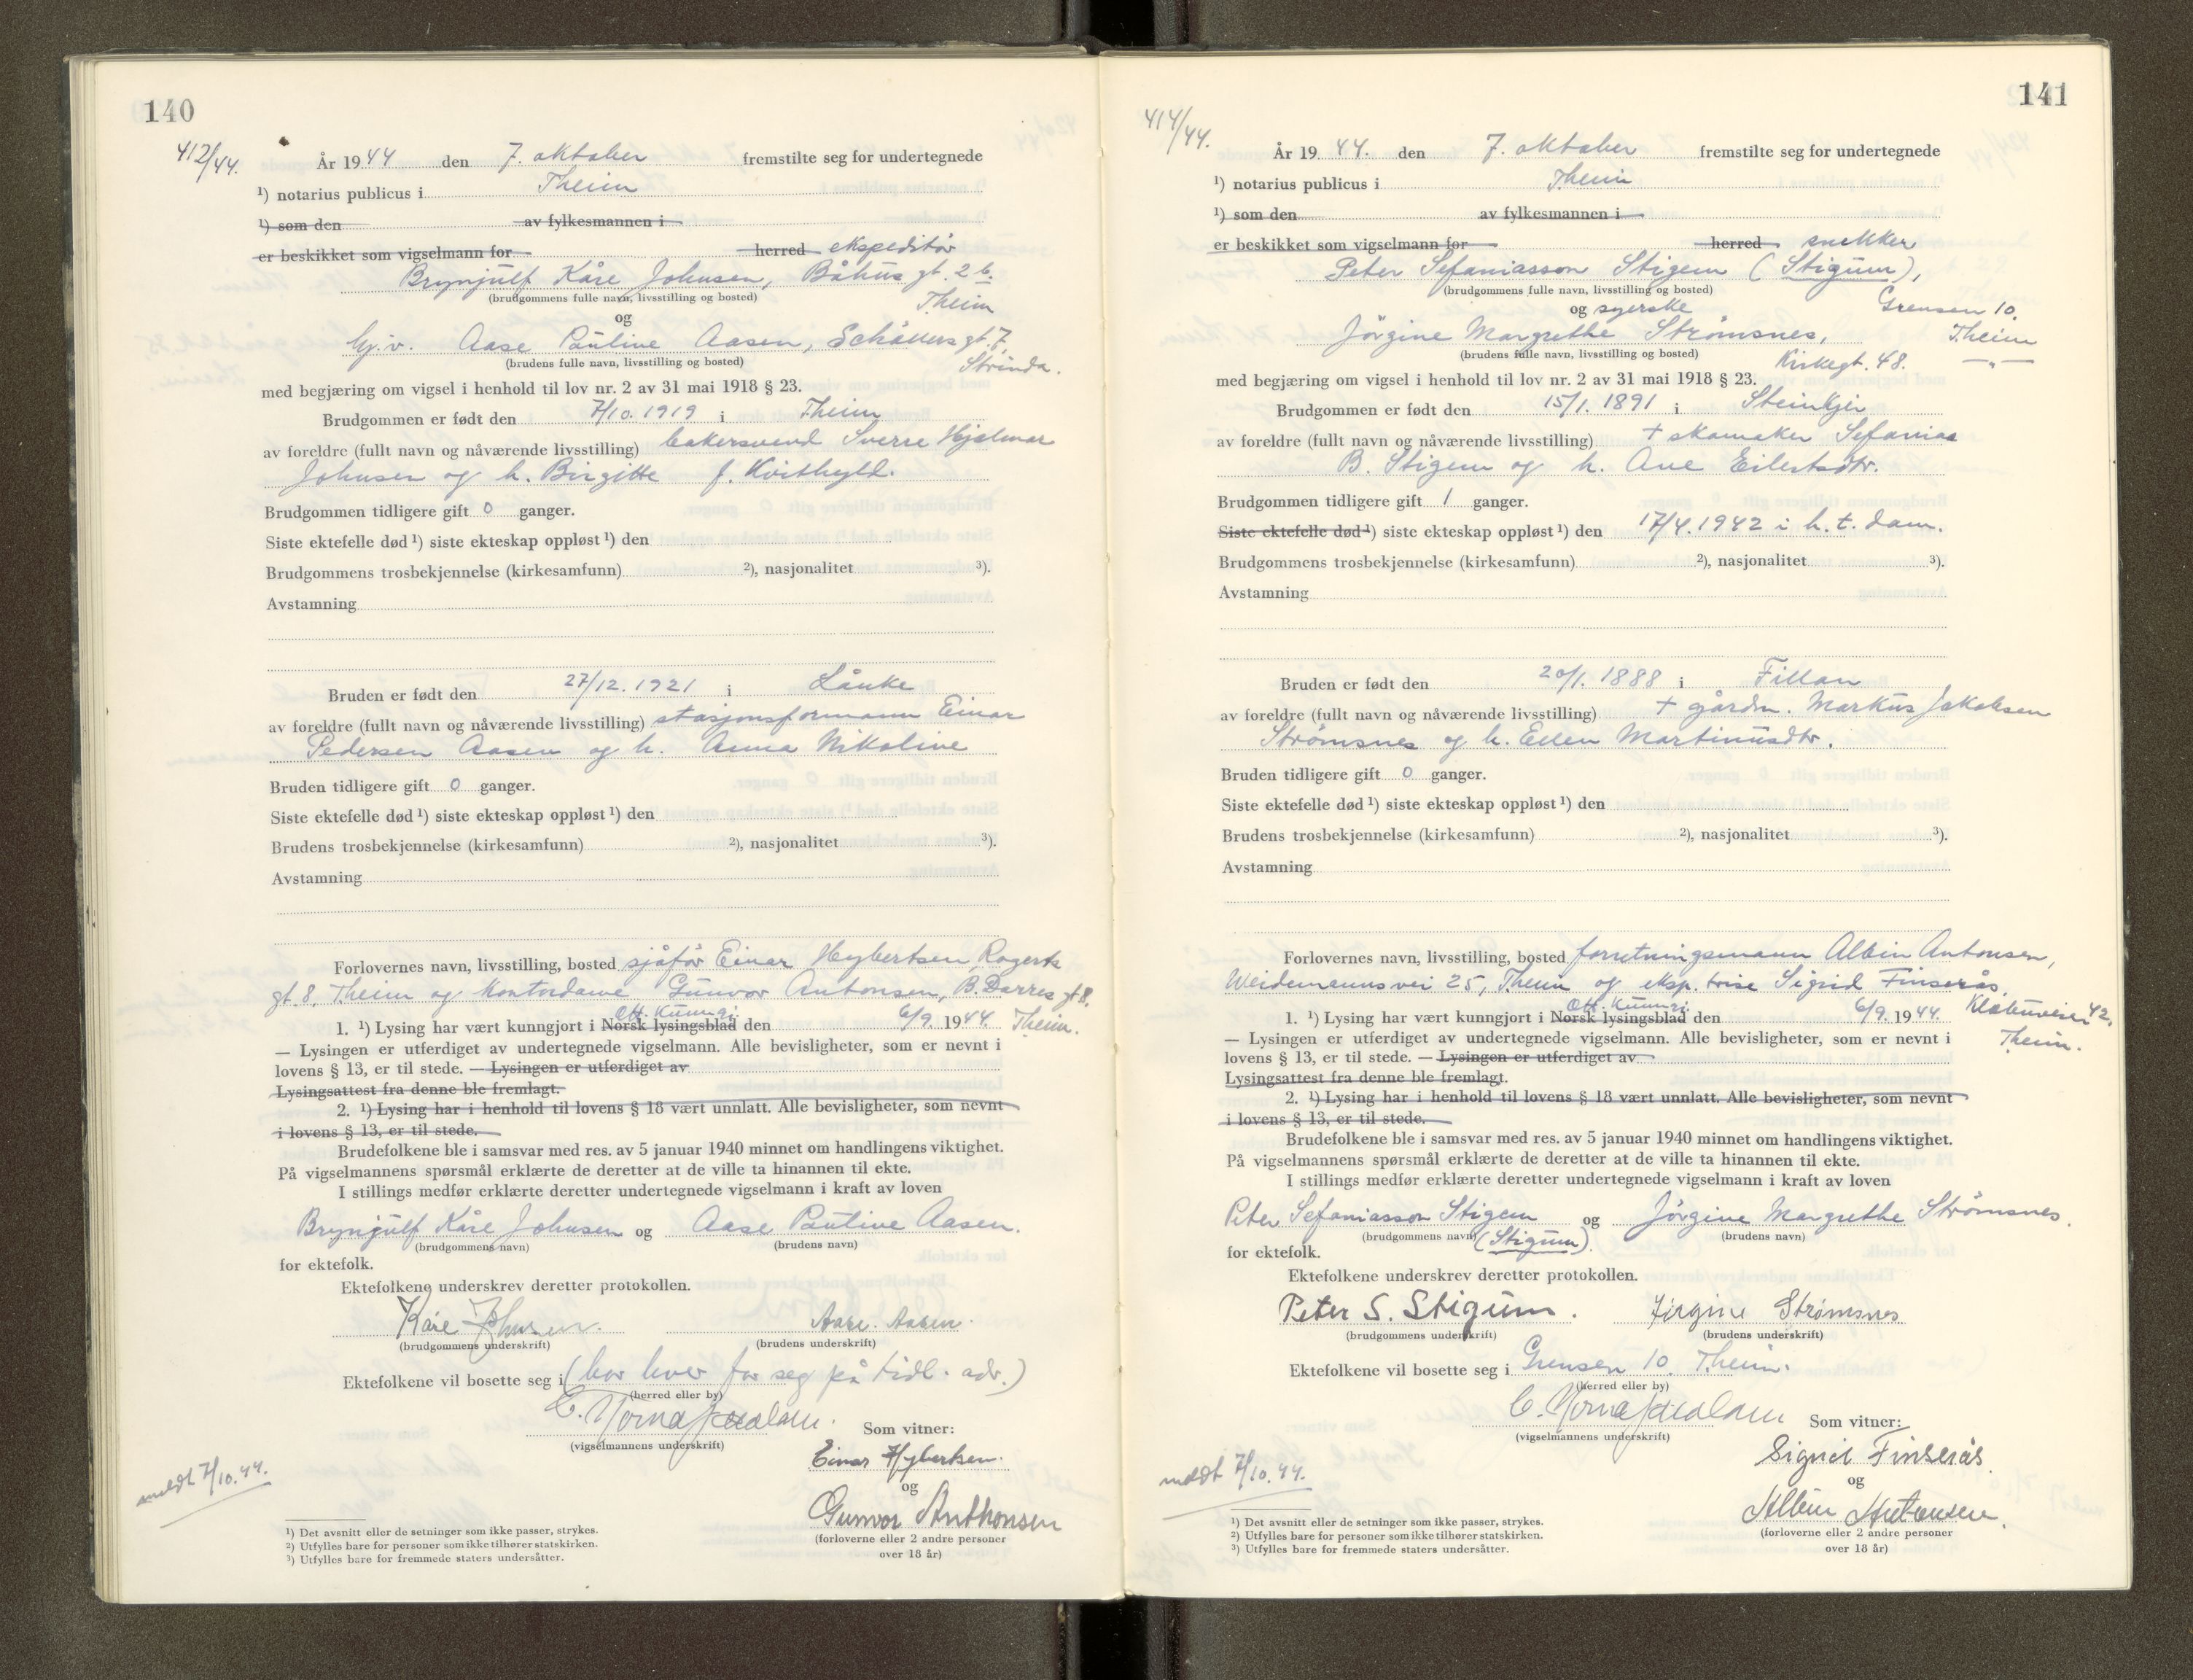 140
412/44.
År 1944 den 7. oktober fremstilte seg for undertegnede
¹) notarius publicus i Theim
¹) som den av fylkesmannen i
er beskikket som vigselmann for herred ekspeditör
Brynjulf Kåre Johnsen, Båhus gt. 2 b.
(brudgommens fulle navn, livsstilling og bosted) Theim
og
hj.v. Aase Pauline Aasen, gt. 7,
(brudens fulle navn, livsstilling og bosted) Strinda.
med begjæring om vigsel i henhold til lov nr. 2 av 31 mai 1918 § 23.
Brudgommen er født den 7/10. 1919 i Theim
av foreldre (fullt navn og nåværende livsstilling) bakersvend Sverre Hjalmar
Johnsen og h. Birgitte f. Kvithyld.
Brudgommen tidligere gift 0 ganger.
Siste ektefelle død ¹) siste ekteskap oppløst ¹) den
Brudgommens trosbekjennelse (kirkesamfunn) ²), nasjonalitet ³).
Avstamning
Bruden er født den 27/12. 1921 i Lånke
av foreldre (fullt navn og nåværende livsstilling) stasjonsformann Einar
Pedersen Aasen og h. Anna Nikoline
Bruden tidligere gift 0 ganger.
Siste ektefelle død ¹) siste ekteskap oppløst ¹) den
Brudens trosbekjennelse (kirkesamfunn) ²), nasjonalitet ³).
Avstamning
Forlovernes navn, livsstilling, bosted sjåför Einar Hybertsen, Rogerts
gt. 8, Theim og kontordame Gunvor Antonsen, B. Darres gt 8,
Off. Kunngj.
1. ¹) Lysing har vært kunngjort i Norsk lysingsblad den 6/9. 1944. Theim.
— Lysingen er utferdiget av undertegnede vigselmann. Alle bevisligheter, som er nevnt i
lovens § 13, er til stede. — Lysingen er utferdiget av
Lysingsattest fra denne ble fremlagt.
2. ¹) Lysing har i henhold til lovens § 18 vært unnlatt. Alle bevisligheter, som nevnt
i lovens § 13, er til stede.
Brudefolkene ble i samsvar med res. av 5 januar 1940 minnet om handlingens viktighet.
På vigselmannens spørsmål erklærte de deretter at de ville ta hinannen til ekte.
I stillings medfør erklærte deretter undertegnede vigselmann i kraft av loven
Brynjulf Kåre Johnsen og Aase Pauline Aasen.
(brudgommens navn) (brudens navn)
for ektefolk.
Ektefolkene underskrev deretter protokollen.
Kåre Johnsen. Aase Aasen.
(brudgommens underskrift) (brudens underskrift)
Ektefolkene vil bosette seg i (bor hver for seg på tidl. adr.)
(herred eller by)
(vigselmannens underskrift)
Som vitner:
Einar Hybertsen.
og
Gunvor Anthonsen
(forloverne eller 2 andre personer
over 18 år)
meldt 7/10.44.
¹) Det avsnitt eller de setninger som ikke passer, strykes.
²) Utfylles bare for personer som ikke tilhører statskirken.
³) Utfylles bare for fremmede staters undersåtter.
141
414/44.
År 1944. den 7. oktober fremstilte seg for undertegnede
¹) notarius publicus i Theim
¹) som den av fylkesmannen i
er beskikket som vigselmann for herred snekker
Peter Sefaniasson Stigem (Stigum),
(brudgommens fulle navn, livsstilling og bosted) Grensen 10,
og syerske Theim
Jörgine Margrethe Strömsnes,
(brudens fulle navn, livsstilling og bosted) Kirkegt. 48. — " —
med begjæring om vigsel i henhold til lov nr. 2 av 31 mai 1918 § 23.
Brudgommen er født den 15/1. 1891 i Steinkjer
av foreldre (fullt navn og nåværende livsstilling) + skomaker Sefanias
B. Stigem og h. Ane Eilertsdtr.
Brudgommen tidligere gift 1 ganger.
Siste ektefelle død ¹) siste ekteskap oppløst ¹) den 17/4. 1942 i h. t. dom.
Brudgommens trosbekjennelse (kirkesamfunn) ²), nasjonalitet ³).
Avstamning
Bruden er født den 20/1. 1888 i Fillan
av foreldre (fullt navn og nåværende livsstilling) + gårdm. Markus Jakobsen
Strömsnes og h. Ellen Martinusdtr.
Bruden tidligere gift 0 ganger.
Siste ektefelle død ¹) siste ekteskap oppløst ¹) den
Brudens trosbekjennelse (kirkesamfunn) ²), nasjonalitet ³).
Avstamning
Forlovernes navn, livsstilling, bosted forretningsmann Albin Antonsen,
Weidemannsvei 25, Theim og eksp. trise Sigrid Finserås,
Off. Kunngj.
1. ¹) Lysing har vært kunngjort i Norsk lysingsblad den 6/9. 1944. 42,
Theim.
— Lysingen er utferdiget av undertegnede vigselmann. Alle bevisligheter, som er nevnt i
lovens § 13, er til stede. — Lysingen er utferdiget av
Lysingsattest fra denne ble fremlagt.
2. ¹) Lysing har i henhold til lovens § 18 vært unnlatt. Alle bevisligheter, som nevnt
i lovens § 13, er til stede.
Brudefolkene ble i samsvar med res. av 5 januar 1940 minnet om handlingens viktighet.
På vigselmannens spørsmål erklærte de deretter at de ville ta hinannen til ekte.
I stillings medfør erklærte deretter undertegnede vigselmann i kraft av loven
Peter Sefaniasson Stigem og Jörgine Margrethe Strömsnes.
(brudgommens navn) (Stigum). (brudens navn)
for ektefolk.
Ektefolkene underskrev deretter protokollen.
Peter S. Stigum. Jørgine Strømsnes
(brudgommens underskrift) (brudens underskrift)
Ektefolkene vil bosette seg i Grensen 10, Theim.
(herred eller by)
(vigselmannens underskrift)
Som vitner:
Sigrid Finserås.
og
Albin Antonsen.
(forloverne eller 2 andre personer
over 18 år)
meldt 7/10.44.
¹) Det avsnitt eller de setninger som ikke passer, strykes.
²) Utfylles bare for personer som ikke tilhører statskirken.
³) Utfylles bare for fremmede staters undersåtter.